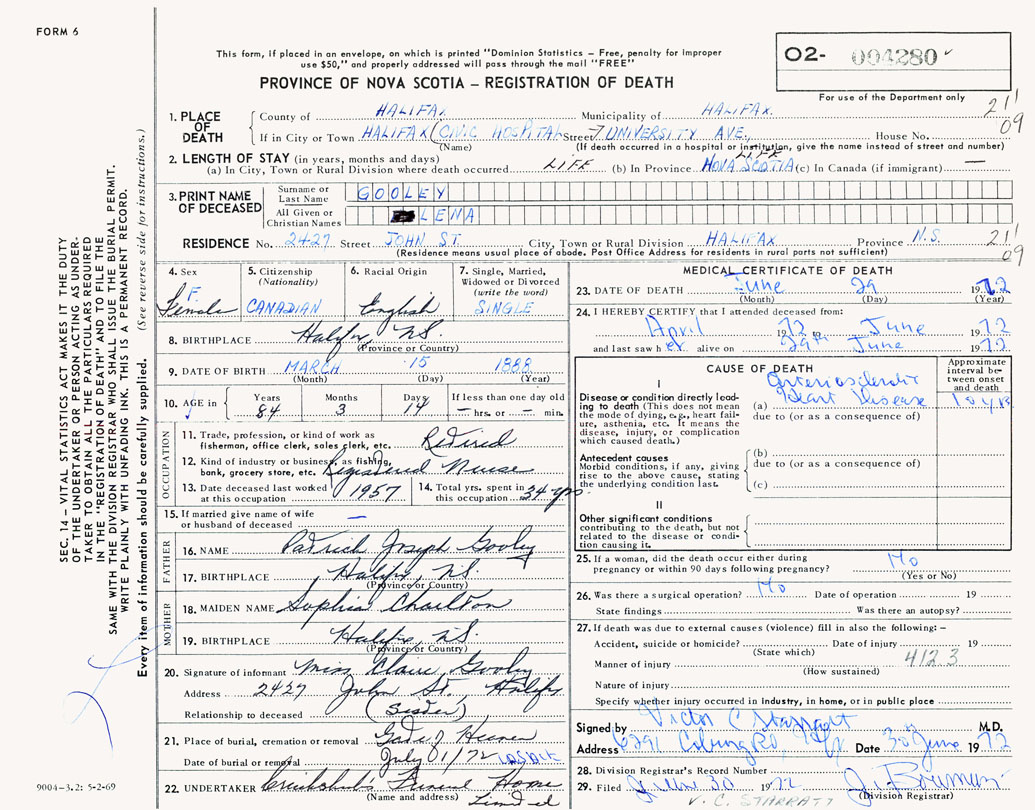 FORM 6
This form, if placed in an envelope, on which is printed "Dominion Statistics – Free, penalty for improper
use $50," and properly addressed will pass through the mail "FREE"
PROVINCE OF NOVA SCOTIA – REGISTRATION OF DEATH
O2- 004280
For use of the Department only
211
09
1. PLACE OF DEATH
County of HALIFAX Municipality of HALIFAX.
If in City or Town HALIFAX (CIVIC HOSPITAL Street 7 UNIVERSITY AVE, House No.
(Name) (If death occurred in a hospital or institution, give the name instead of street and number)
2. LENGTH OF STAY (in years, months and days) LIFE
(a) In City, Town or Rural Division where death occurred LIFE (b) In Province NOVA SCOTIA (c) In Canada (if immigrant) —
3. PRINT NAME OF DECEASED
Surname or Last Name GOOLEY
All Given or Christian Names LENA
RESIDENCE No. 2427 Street JOHN ST. City, Town or Rural Division HALIFAX Province N.S. 211
(Residence means usual place of abode. Post Office Address for residents in rural parts not sufficient) 09
4. Sex F. Female
5. Citizenship (Nationality) CANADIAN
6. Racial Origin English
7. Single, Married, Widowed or Divorced (write the word) SINGLE
8. BIRTHPLACE Halifax NS.
(Province or Country)
9. DATE OF BIRTH MARCH 15 1888
(Month) (Day) (Year)
10. AGE in Years 84 Months 3 Days 14 If less than one day old – hrs. or – min.
OCCUPATION
11. Trade, profession, or kind of work as fisherman, office clerk, sales clerk, etc. Retired
12. Kind of industry or business, as fishing, bank, grocery store, etc. Registered Nurse
13. Date deceased last worked at this occupation 1957
14. Total yrs. spent in this occupation 34 yrs.
15. If married give name of wife or husband of deceased —
FATHER
16. NAME Patrick Joseph Gooley
17. BIRTHPLACE Halifax, NS.
(Province or Country)
MOTHER
18. MAIDEN NAME Sophia Charlton
19. BIRTHPLACE Halifax, NS.
(Province or Country)
20. Signature of informant Miss Claire Gooley
Address 2427 John St. Halifax
Relationship to deceased (Sister)
21. Place of burial, cremation or removal Gate of Heaven
Date of burial or removal July 01/72
22. UNDERTAKER Cruikshank's Funeral Home
(Name and address) Limited
MEDICAL CERTIFICATE OF DEATH
23. DATE OF DEATH June 29 1972
(Month) (Day) (Year)
24. I HEREBY CERTIFY that I attended deceased from:
April 1972 to June 1972
and last saw her alive on 29th June 1972
CAUSE OF DEATH
Approximate interval between onset and death
I
Disease or condition directly leading to death (This does not mean the mode of dying, e.g., heart failure, asthenia, etc. It means the disease, injury, or complication which caused death.)
Arteriosclerotic
(a) Heart Disease 10 yrs
due to (or as a consequence of)
Antecedent causes
Morbid conditions, if any, giving rise to the above cause, stating the underlying condition last.
(b)
due to (or as a consequence of)
(c)
II
Other significant conditions contributing to the death, but not related to the disease or condition causing it.
25. If a woman, did the death occur either during pregnancy or within 90 days following pregnancy? No
(Yes or No)
26. Was there a surgical operation? No Date of operation 19
State findings Was there an autopsy?
27. If death was due to external causes (violence) fill in also the following: –
Accident, suicide or homicide? Date of injury 19
(State which)
Manner of injury 412.3
(How sustained)
Nature of injury
Specify whether injury occurred in Industry, in home, or in public place
Signed by Victor C Starratt M.D.
Address 6291 Coburg Rd, Hfx Date 30 June 1972
28. Division Registrar's Record Number
29. Filed June 30 1972
(Division Registrar)
V. C. STARRATT
SEC. 14 – VITAL STATISTICS ACT MAKES IT THE DUTY
OF THE UNDERTAKER OR PERSON ACTING AS UNDER-
TAKER TO OBTAIN ALL THE PARTICULARS REQUIRED
IN THE "REGISTRATION OF DEATH" AND TO FILE THE
SAME WITH THE DIVISION REGISTRAR WHO SHALL ISSUE THE BURIAL PERMIT.
WRITE PLAINLY WITH UNFADING INK. THIS IS A PERMANENT RECORD.
Every item of information should be carefully supplied. (See reverse side for instructions.)
9004-3.2: 5-2-69